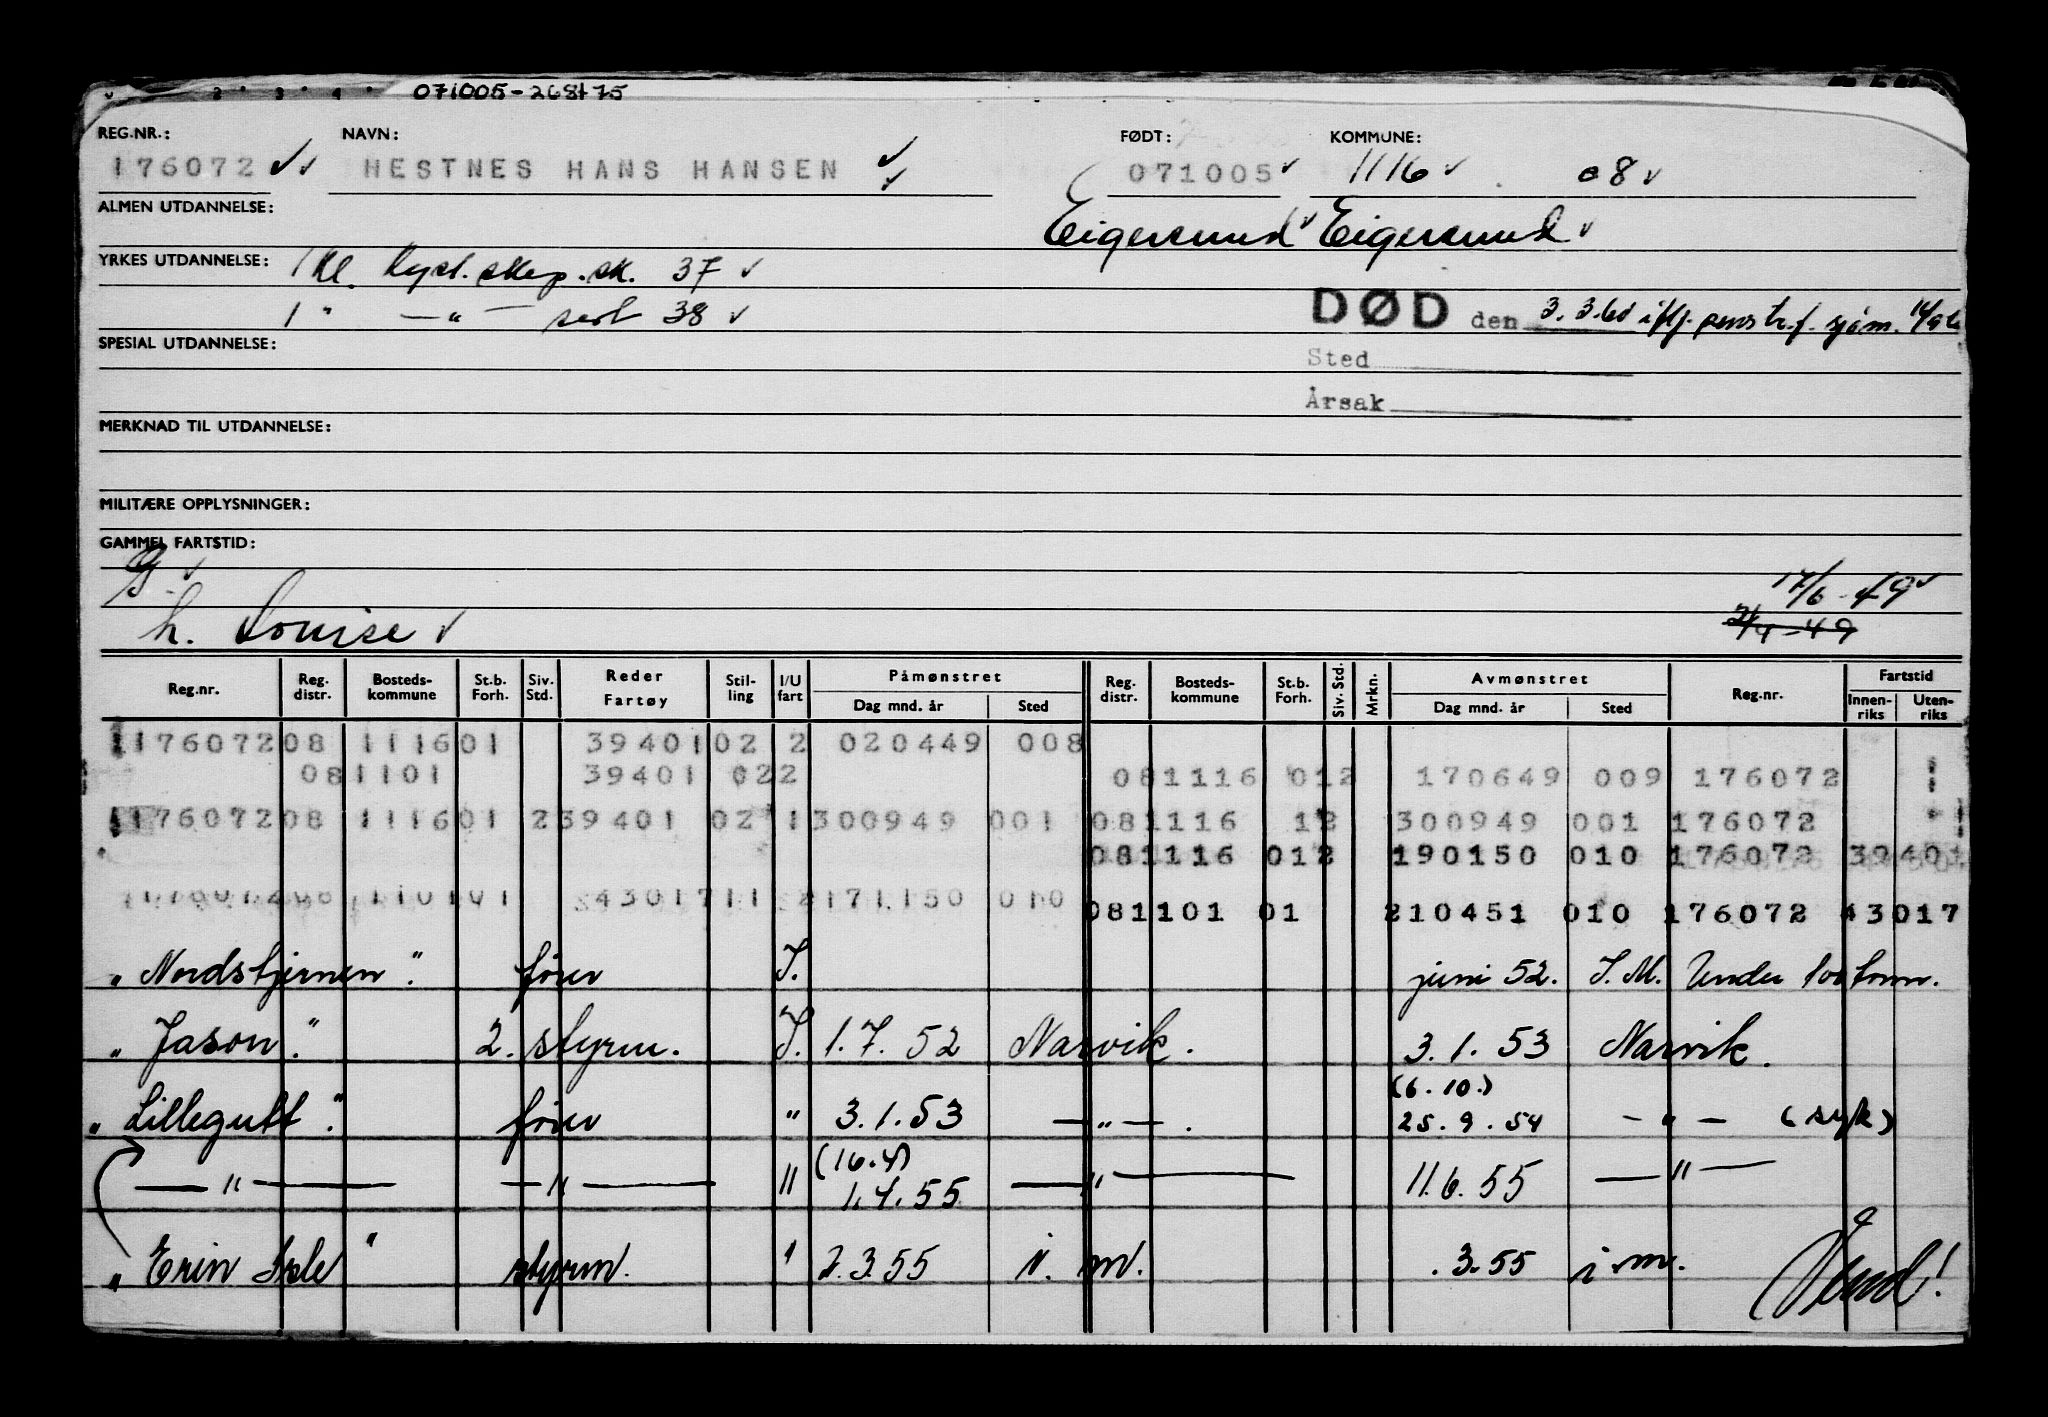 071005-268175
REG.NR.: NAVN: FØDT: KOMMUNE:
176072 HESTNES HANS HANSEN 071005 1116 08
ALMEN UTDANNELSE: Eigersund Eigersund
YRKES UTDANNELSE: 1 kl. kyst.skip.sk. 37
1 " — " — sert 38
DØD den 3.3.60 iflg. penstr.f. sjøm.
SPESIAL UTDANNELSE:
Sted
Årsak
MERKNAD TIL UTDANNELSE:
MILITÆRE OPPLYSNINGER:
GAMMEL FARTSTID:
17/6-49
h. Louise 2/4-49
Reg.nr. Reg. distr. Bosteds-kommune St.b. Forh. Siv. Std. Reder Fartøy Stil-ling I/U fart Påmønstret Dag mnd. år Sted Reg. distr. Bosteds-kommune St.b. Forh. Siv. Std. Mrkn. Avmønstret Dag mnd. år Sted Reg.nr. Fartstid Innen-riks Uten-riks
176072 08 1116 01 39401 02 2 020449 008
08 1101 39401 022 08 1116 012 170649 009 176072
176072 08 1116 01 2 39401 02 1 300949 001 08 1116 12 300949 001 176072
08 1116 012 190150 010 176072 39401
171150 010 08 1101 01 210451 010 176072 43017
"Nordstjernen". fører I. juni 52. I.M. Under 100 tonn.
"Jason". 2. styrm. I. 1.7.52 Narvik. 3.1.53 Narvik.
(6.10.)
"Lillegutt". fører " 3.1.53 — " — . 25.9.54 — " — (syk)
(16.4)
— " — — " — " 1.4.55 — " — 11.6.55 — " —
"Erin Isle" styrm. " 2.3.55 i. m. .3.55 i.m. Vend!